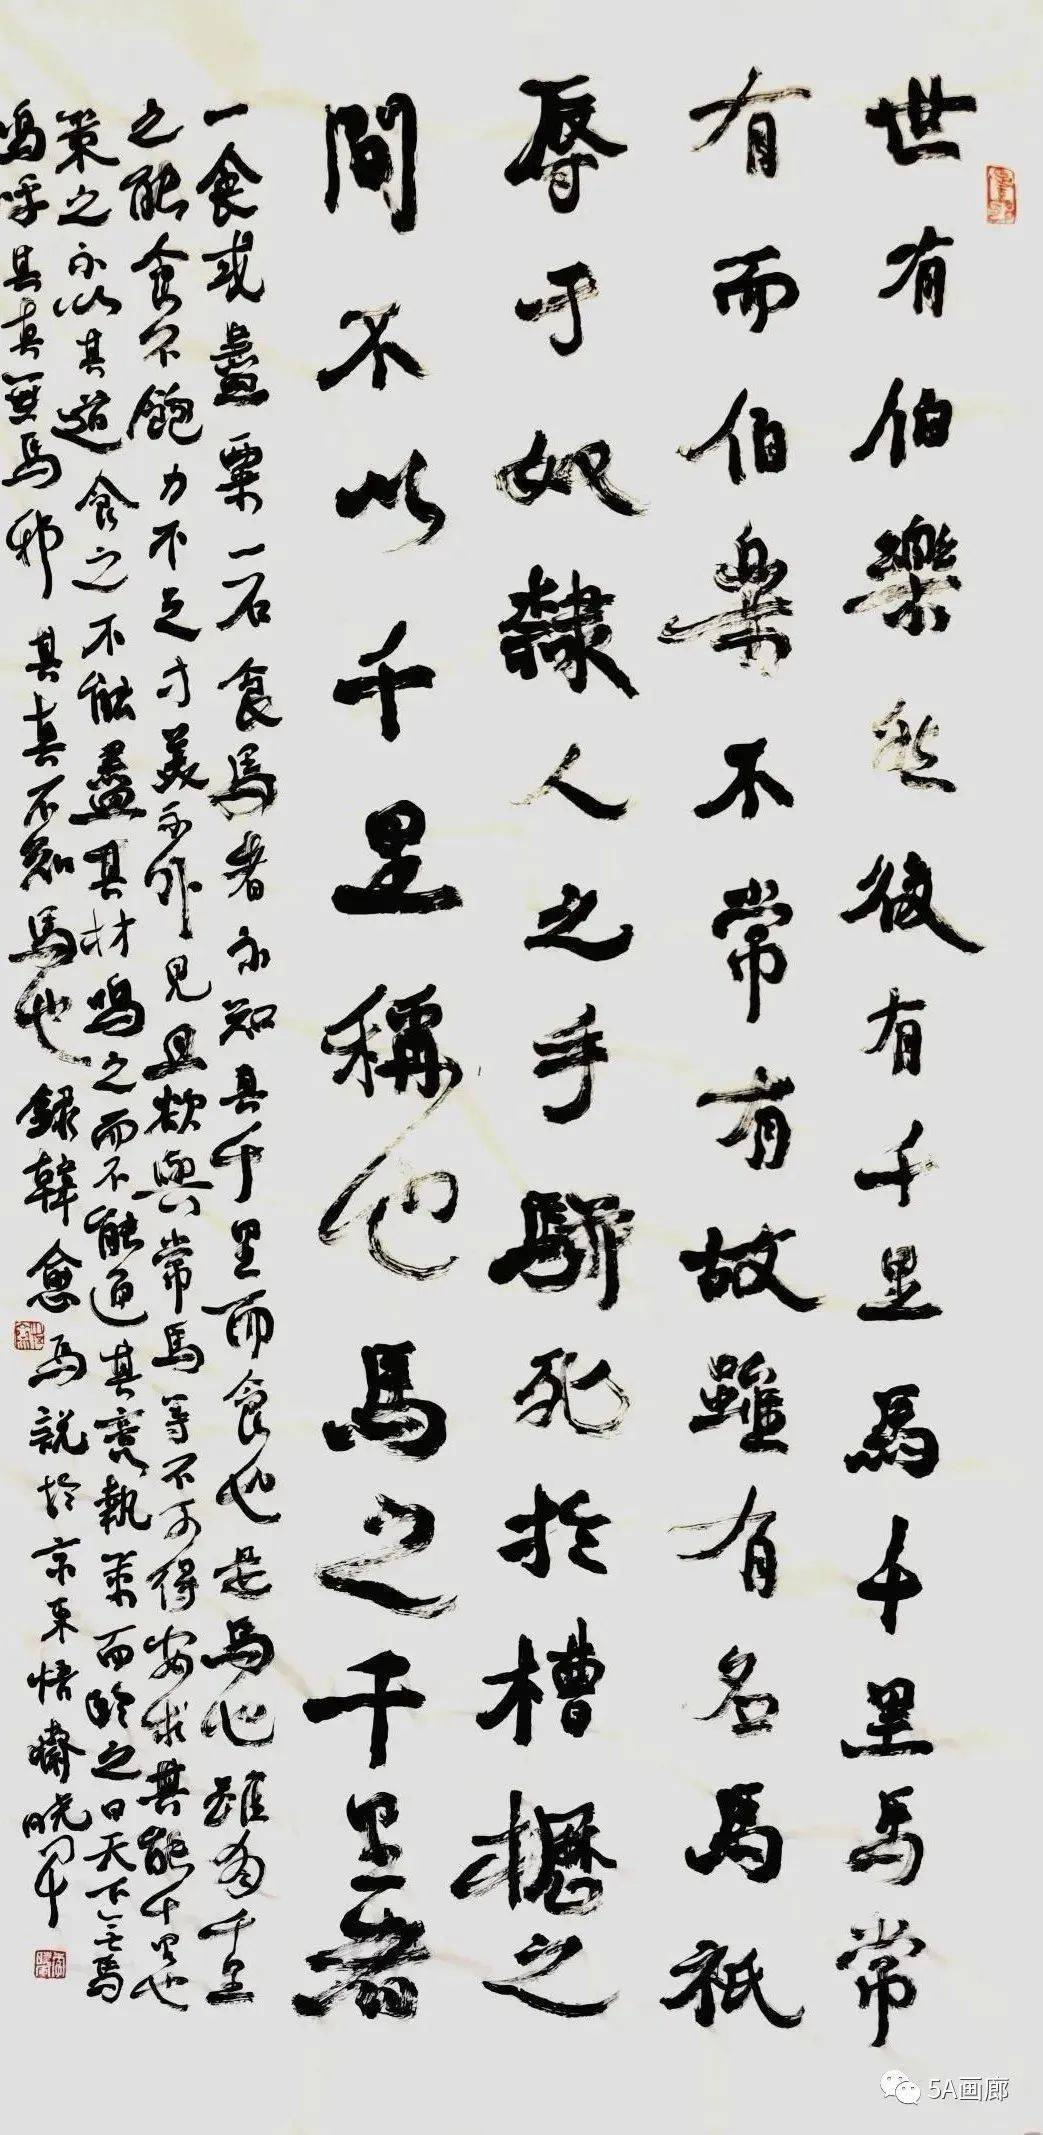 世有伯樂然後有千里馬千里馬常
有而伯樂不常有故雖有名馬祇
辱于奴隸人之手駢死於槽櫪之
間不以千里稱也馬之千里者
一食或盡粟一石食馬者不知其千里而食也是馬也雖有千里
之能食不飽力不足才美不外見且欲與常馬等不可得安求其能千里也
策之不以其道食之不能盡其材鳴之而不能通其意執策而臨之曰天下無馬
嗚呼其真無馬邪其真不知馬也錄韓愈馬說於京東悟齋晓軍
5A画廊